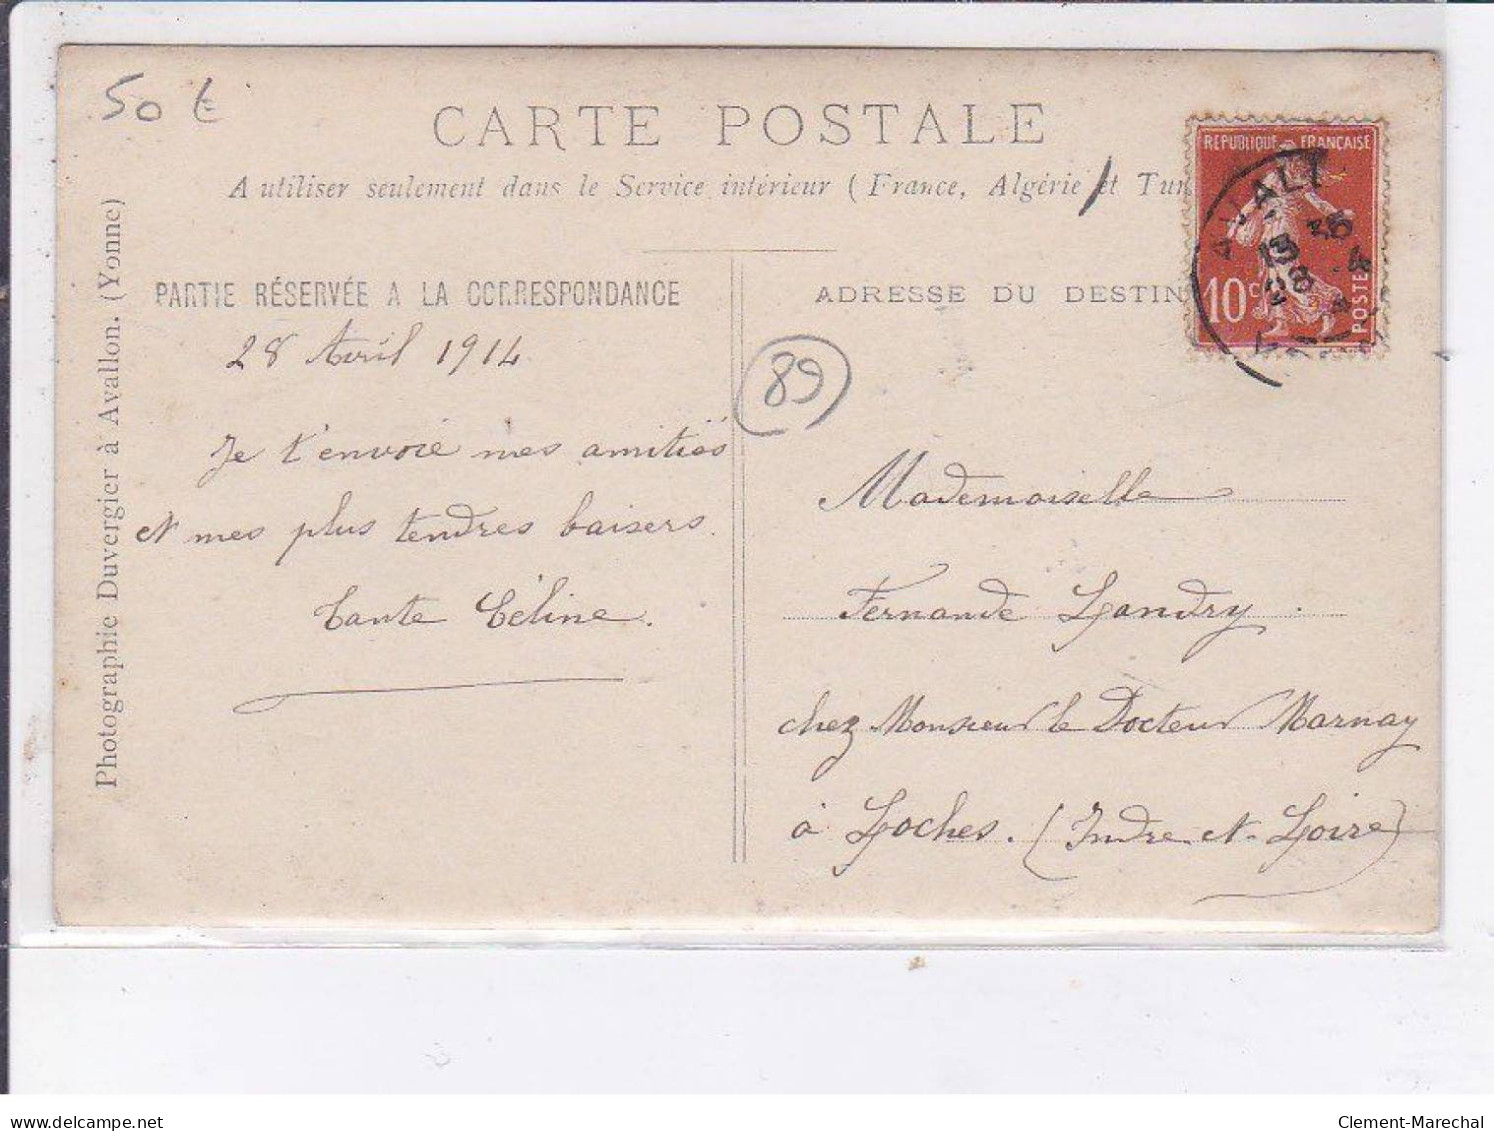 50 €
CARTE POSTALE
A utiliser seulement dans le Service intérieur (France, Algérie et Tun
REPUBLIQUE FRANÇAISE
10 c
POSTES
PARTIE RÉSERVÉE A LA CORRESPONDANCE
28 Avril 1914
Je t'envoie mes amitiés
et mes plus tendres baisers.
Tante Céline.
89
ADRESSE DU DESTIN
Mademoiselle
Fernande Landry.
chez Monsieur le Docteur Marnay
à Loches. (Indre et Loire)
Photographie Duvergier à Avallon. (Yonne)
www.delcampe.net
Clement-Marechal